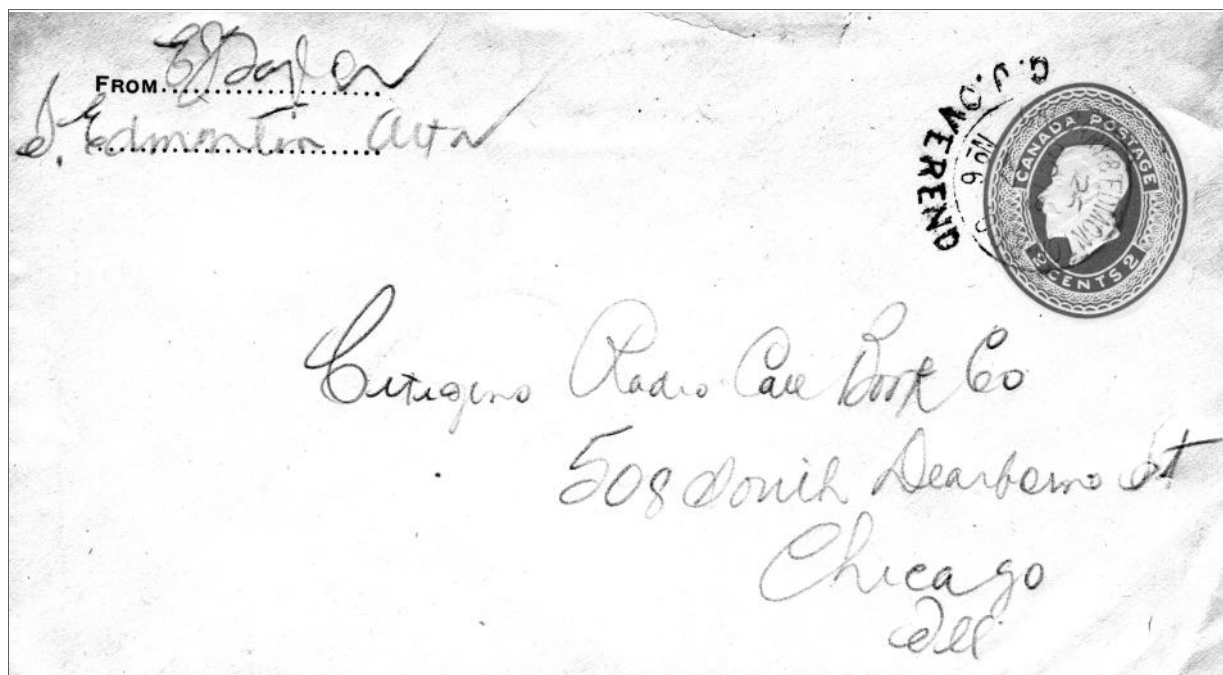 FROM E J Taylor
S. Edmonton Alta
G. J. O. WEREND
NO 6
25
CANADA POSTAGE
2 CENTS 2
Citizens Radio Call Book Co
508 South Dearborn St
Chicago
Ill